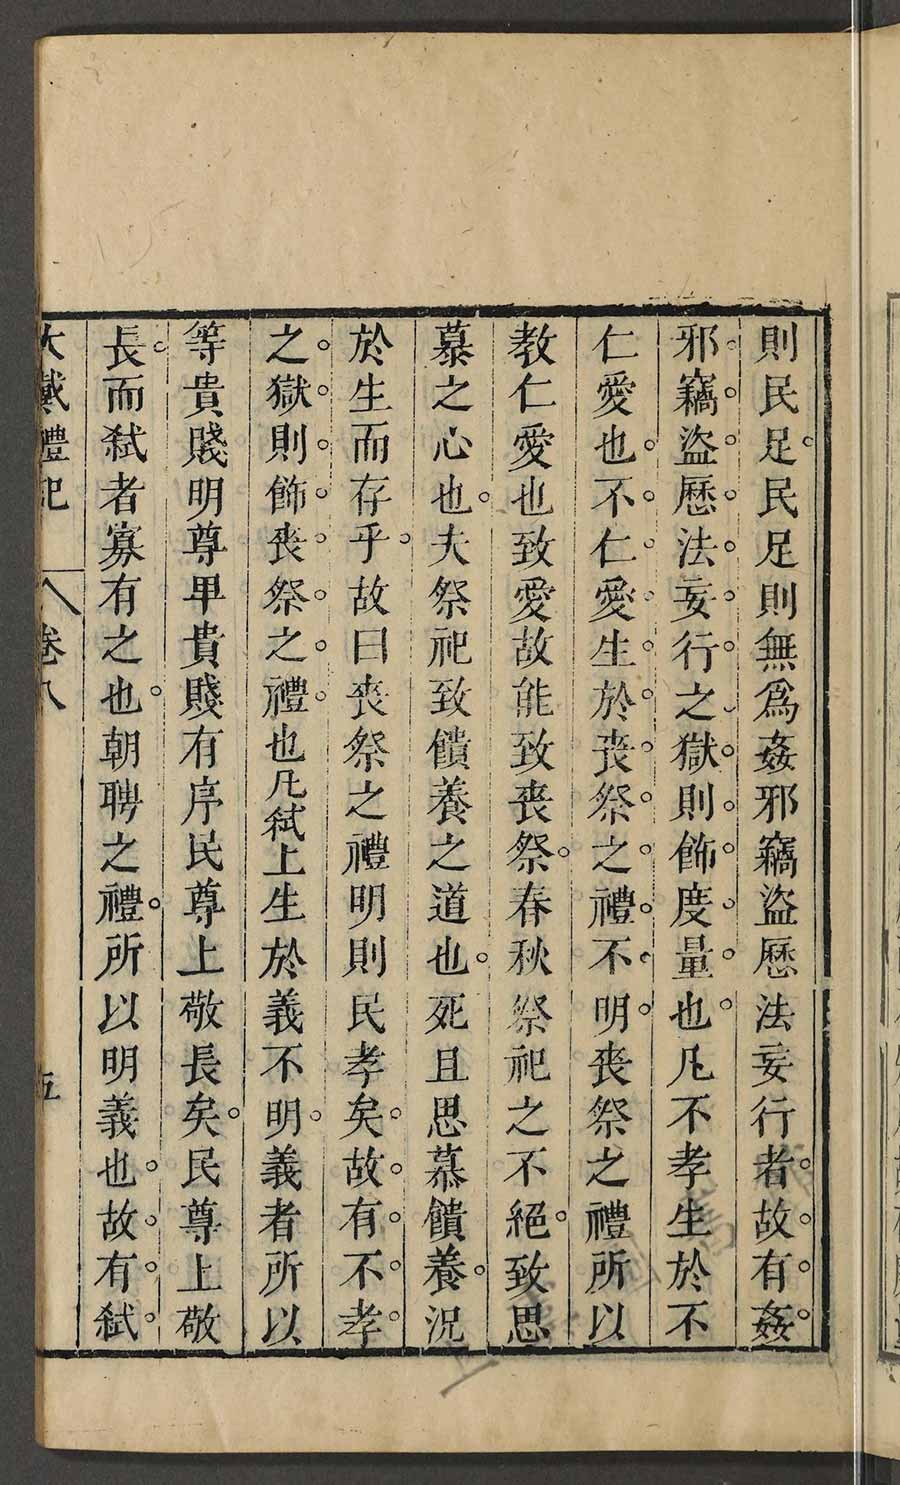 則民足民足則無爲姦邪竊盜歷法妄行者故有姦
邪竊盜歷法妄行之獄則飾度量也凡不孝生於不
仁愛也不仁愛生於喪祭之禮不明喪祭之禮所以
教仁愛也致愛故能致喪祭春秋祭祀之不絕致思
慕之心也夫祭祀致饋養之道也死且思慕饋養況
於生而存乎故曰喪祭之禮明則民孝矣故有不孝
之獄則飾喪祭之禮也凡弑上生於義不明義者所以
等貴賤明尊卑貴賤有序民尊上敬長矣民尊上敬
長而弑者寡有之也朝聘之禮所以明義也故有弑
大戴禮記 卷八 五